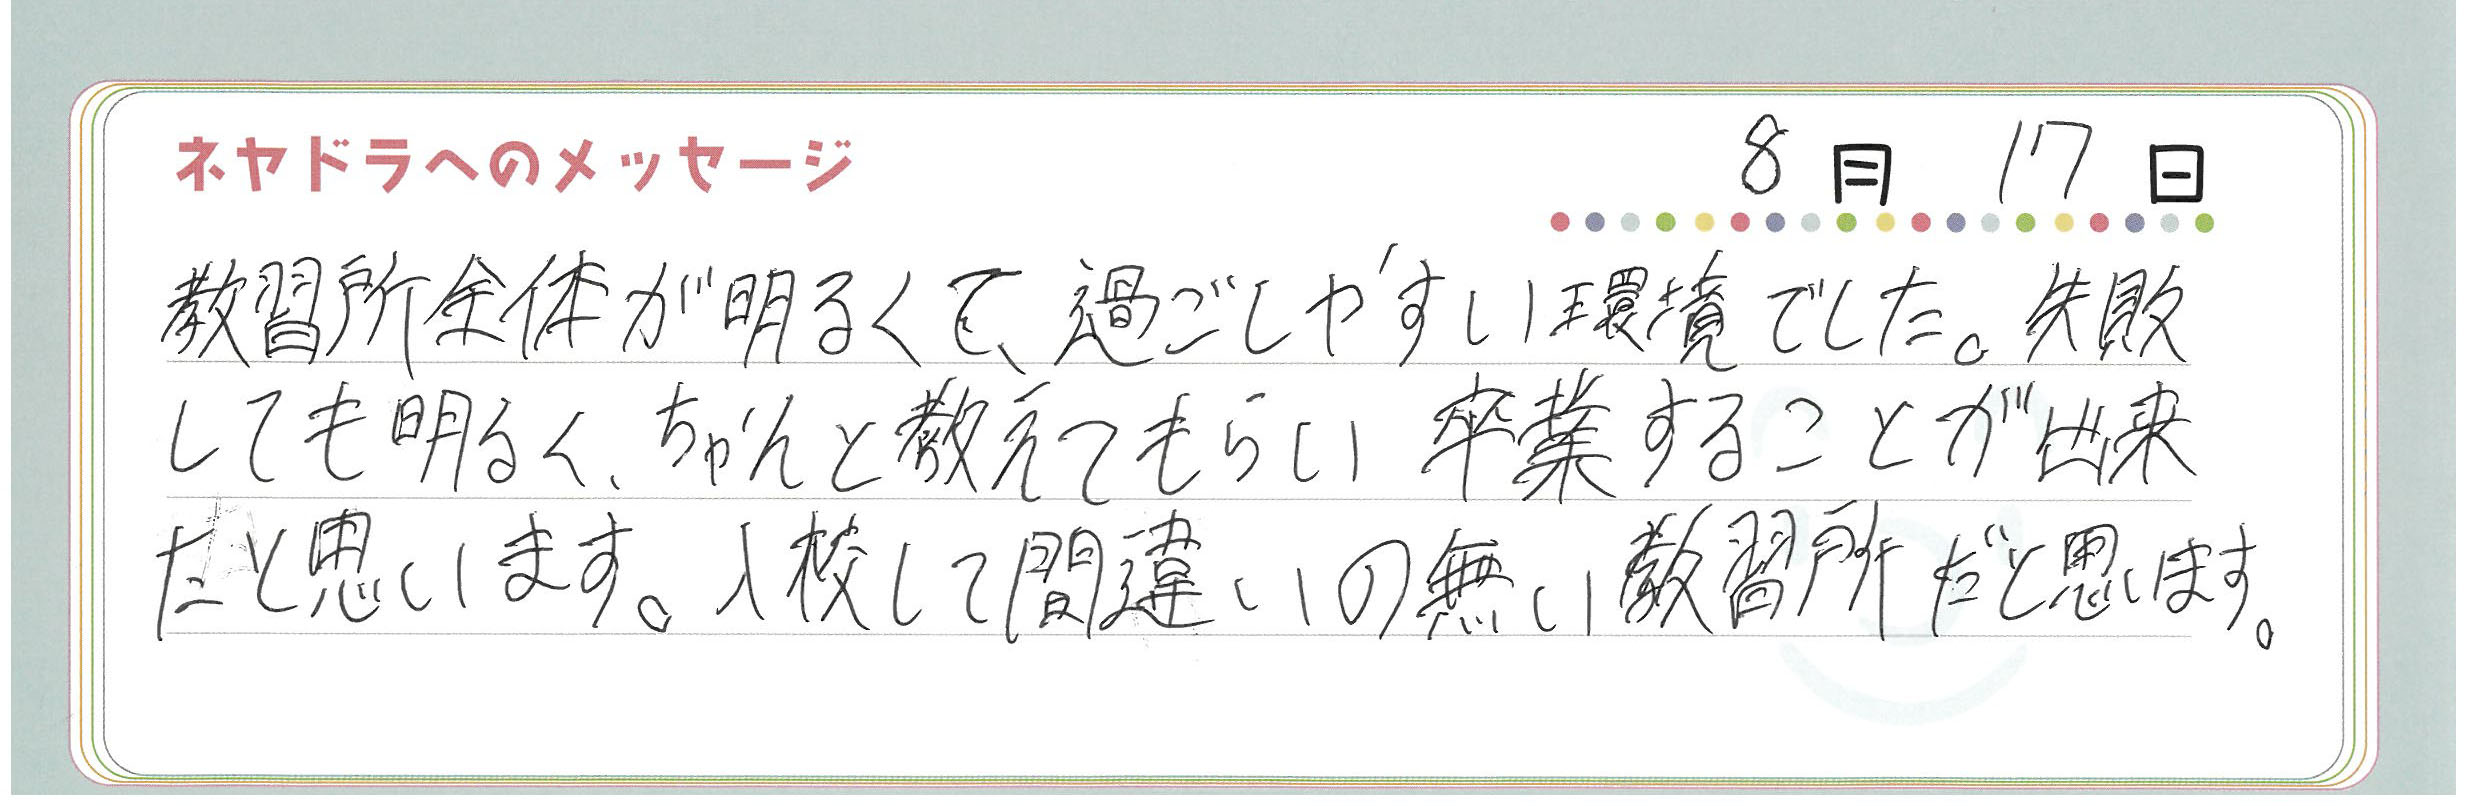 ネヤドラへのメッセージ
8月 17日
教習所全体が明るくて、過ごしやすい環境でした。失敗
しても明るく、ちゃんと教えてもらい卒業することが出来
たと思います。入校して間違いの無い教習所だと思います。